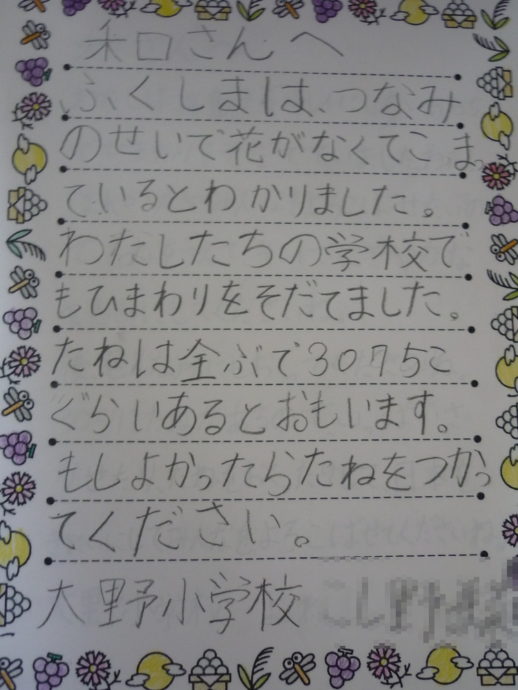 和口さんへ
ふくしまは、つなみ
のせいで花がなくてこま
ているとわかりました。
わたしたちの学校で
もひまわりをそだてました。
たねは全ぶで3075こ
ぐらいあるとおもいます。
もしよかったらたねをつかっ
てください。
大野小学校